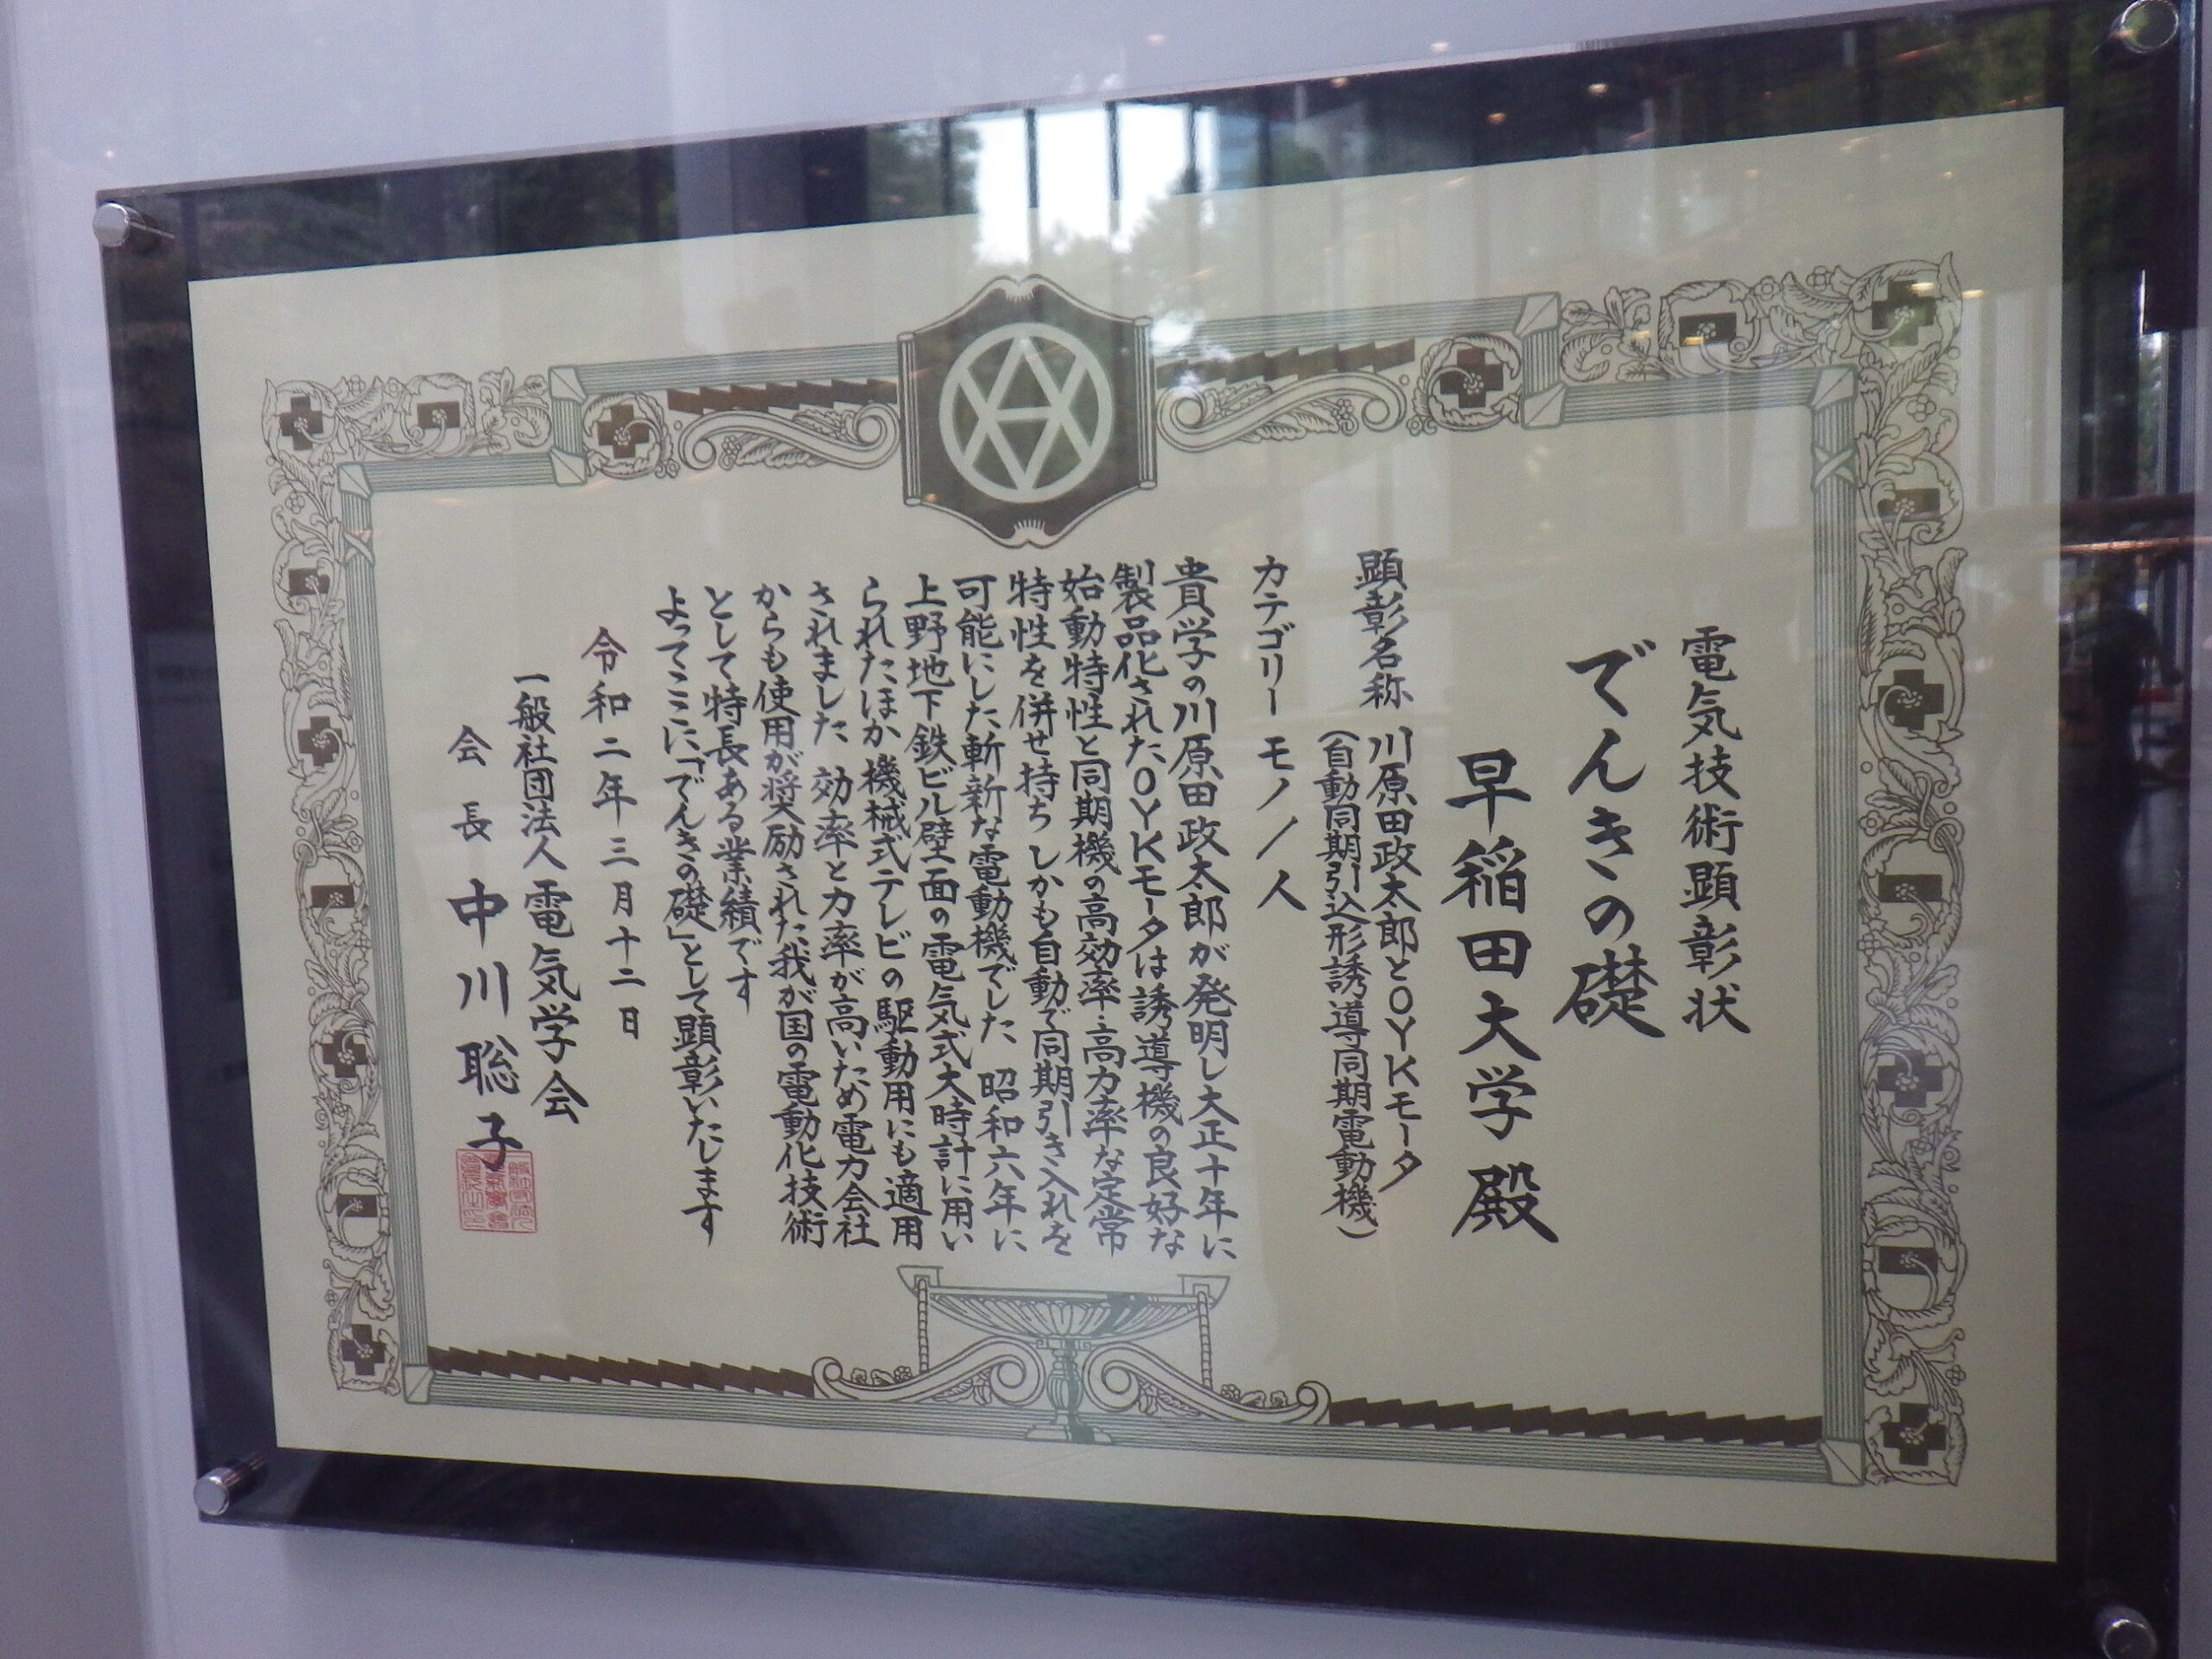 電気技術顕彰状
でんきの礎
早稲田大学殿
顕彰名称 川原田政太郎とOYKモータ
(自動同期引込形誘導同期電動機)
カテゴリー モノ/人
貴学の川原田政太郎が発明し大正十年に
製品化されたOYKモータは誘導機の良好な
始動特性と同期機の高効率・高力率な定常
特性を併せ持ち しかも自動で同期引き入れを
可能にした斬新な電動機でした 昭和六年に
上野地下鉄ビル壁面の電気式大時計に用い
られたほか機械式テレビの駆動用にも適用
されました 効率と力率が高いため電力会社
からも使用が奨励された我が国の電動化技術
として特長ある業績です
よってここに「でんきの礎」として顕彰いたします
令和二年三月十二日
一般社団法人電気学会
会長 中川聡子